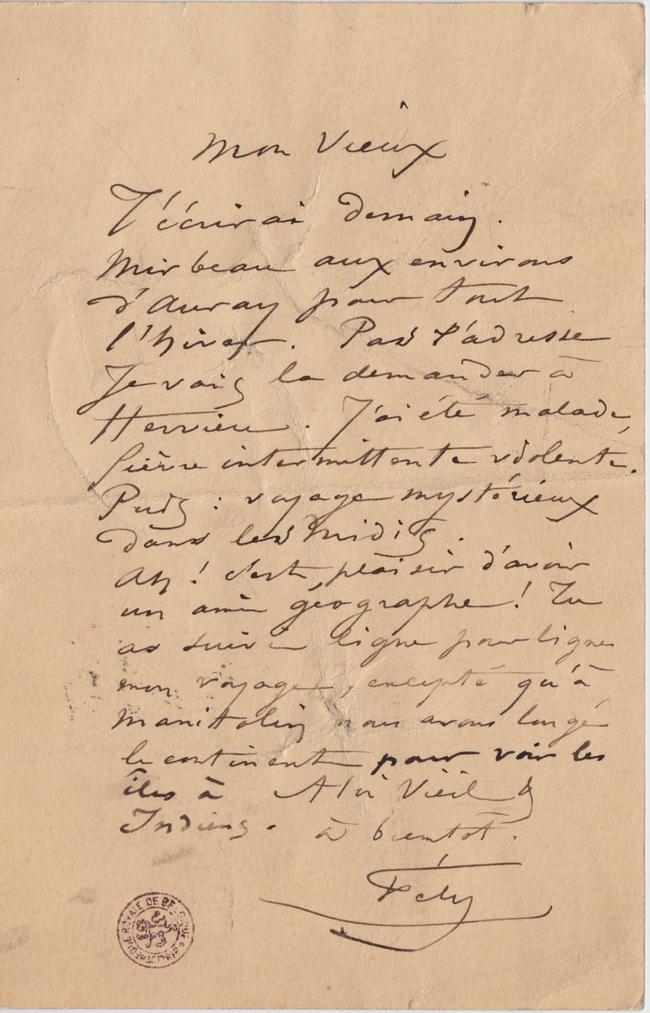 Mon Vieux
T'écrirai demain.
Mirbeau aux environs
d'Auray pour tout
l'hiver. Pas d'adresse
Je vais la demander à
Hervieu. J'ai été malade,
fièvre intermittente violente.
Puis : voyage mystérieux
dans les midis.
Ah ! c'est plaisir d'avoir
un ami géographe ! Tu
as suivi ligne pour ligne
mon voyage, excepté qu'à
Manittolin nous avons longé
le continent pour voir les
îles à
Indiens. à bientôt.
Fély
BIBLIOTHÈQUE ROYALE DE BELGIQUE